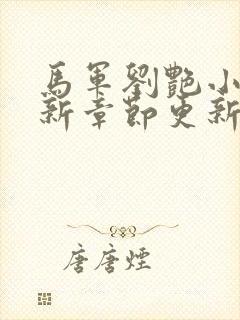 馬軍劉艷小
新章節更新
唐唐煙